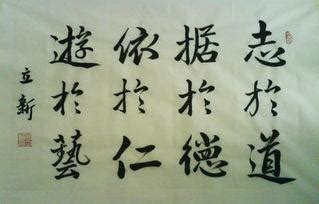 志於道
据於德
依於仁
遊於藝
立新